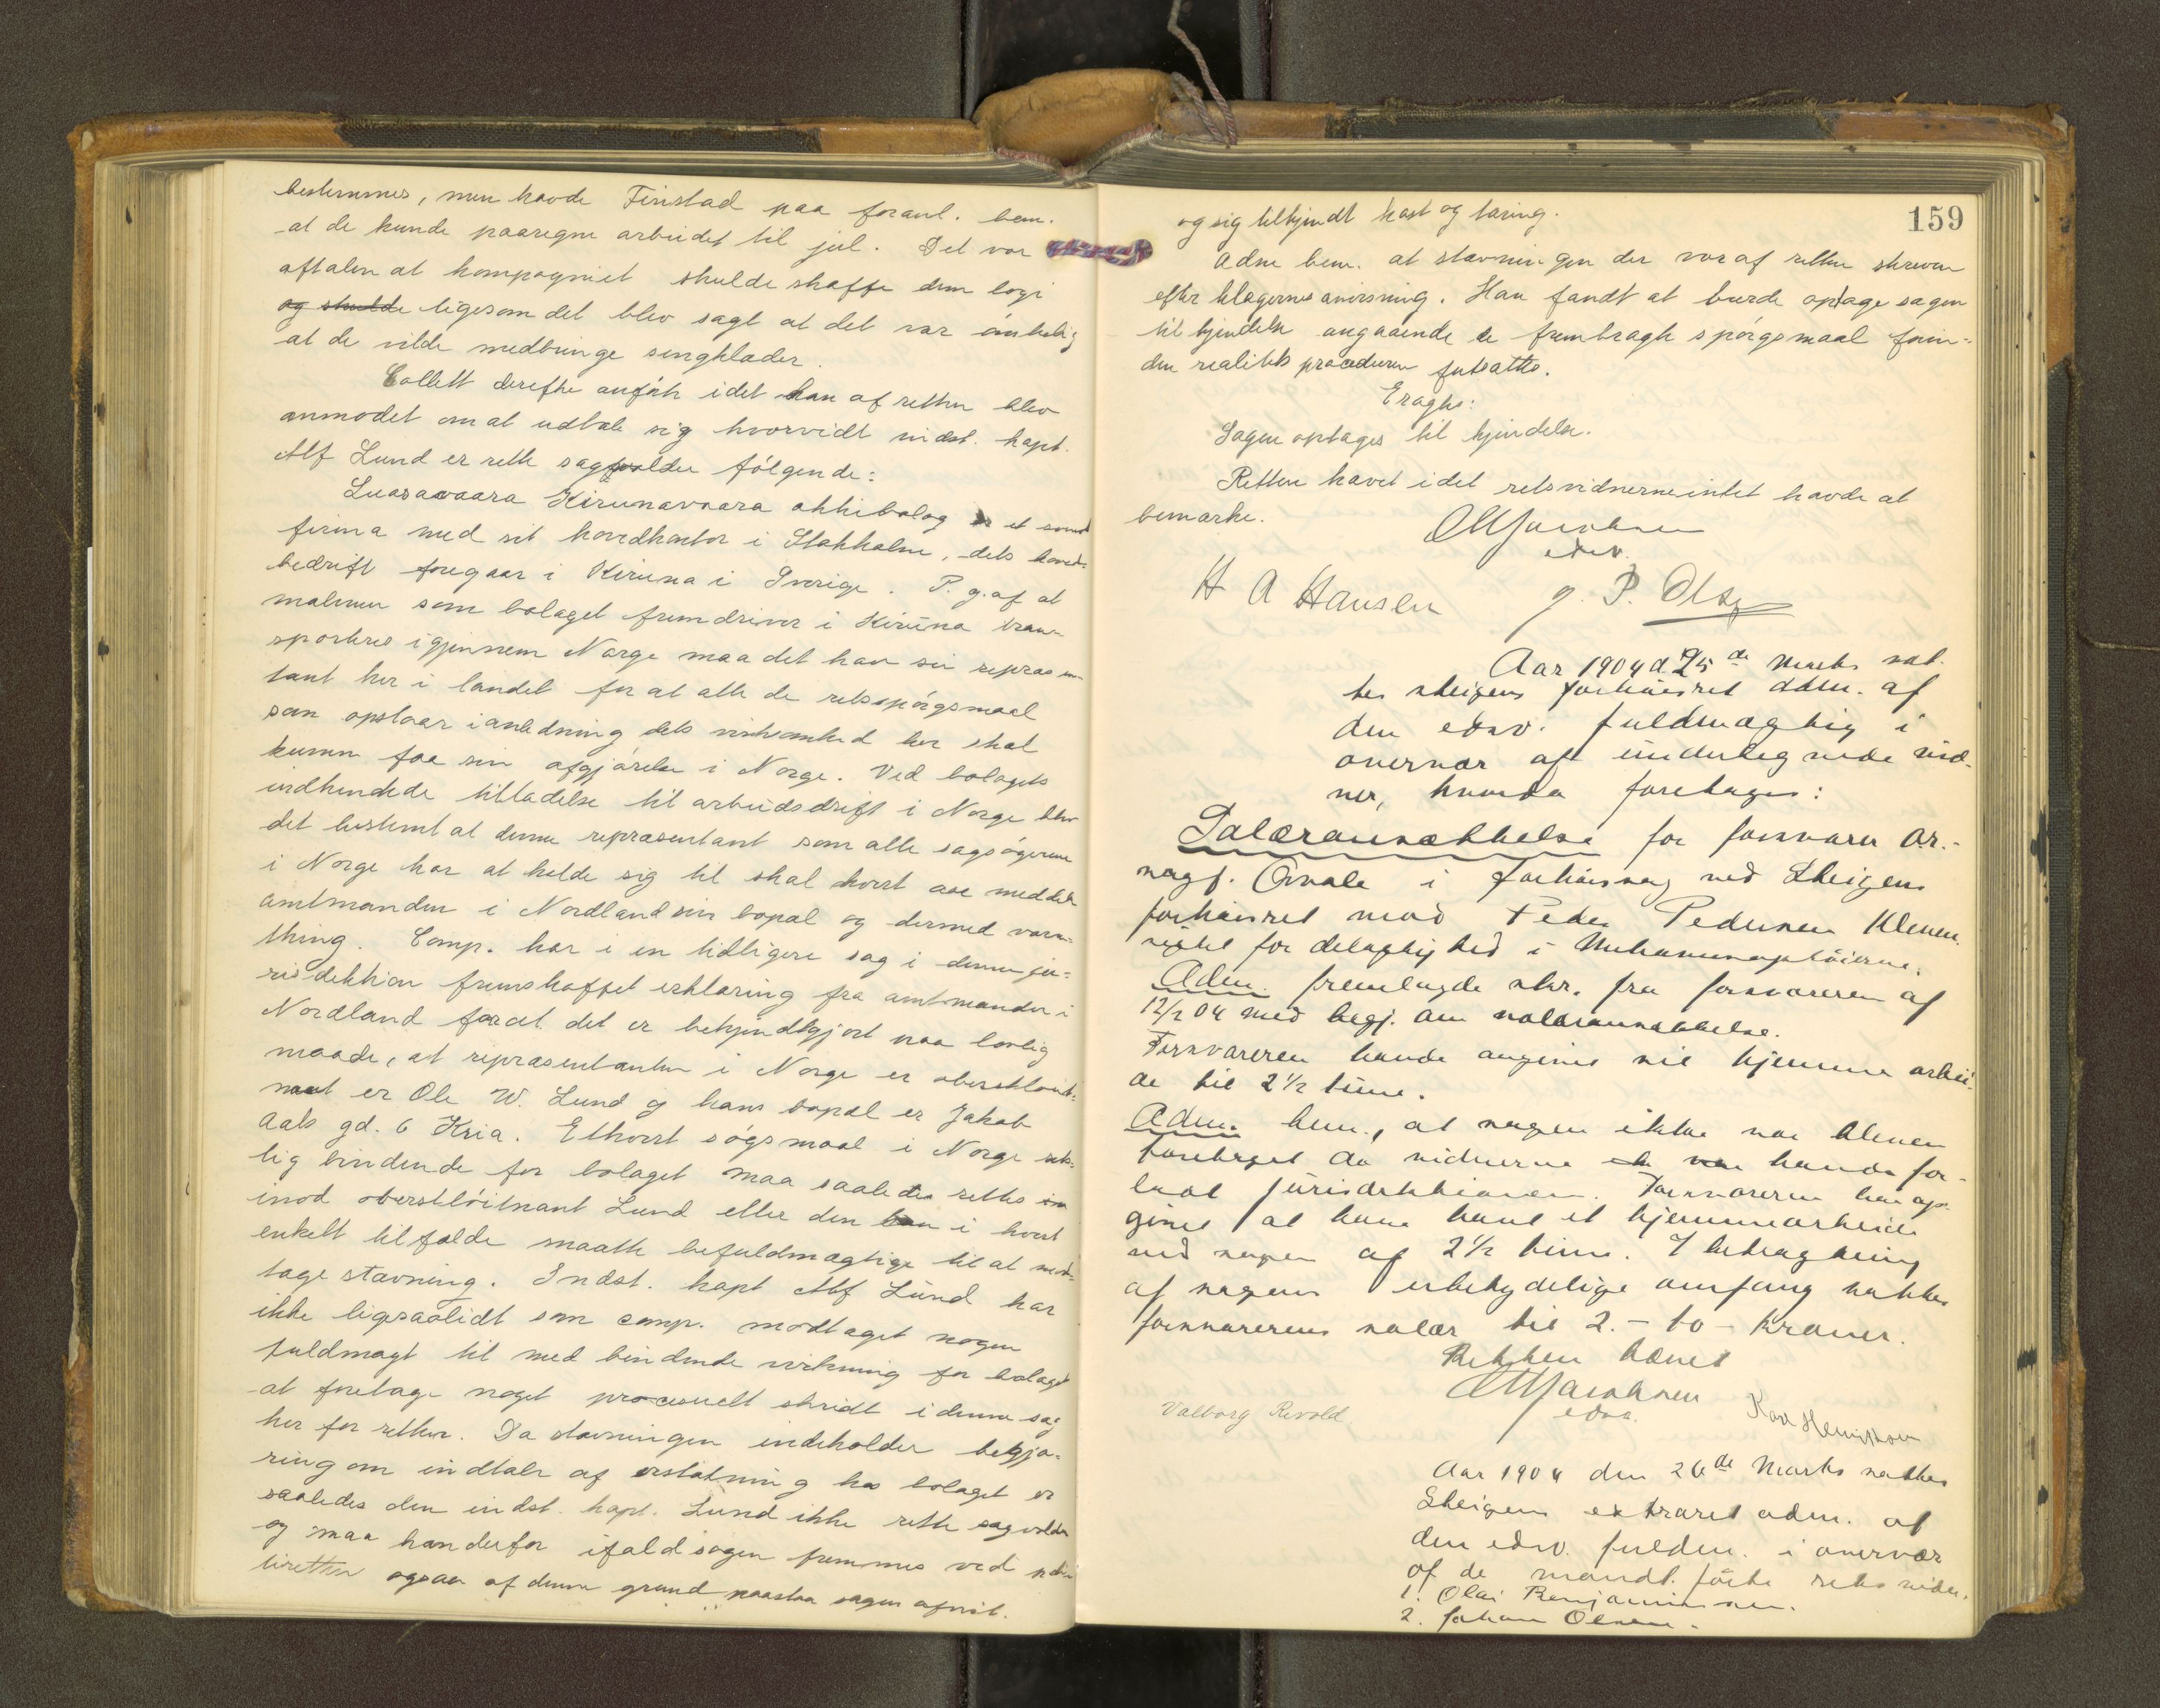 bestemmes, men havde Finstad paa foranl. bem.
at de kunde paaregne arbeidet til jul. Det var
aftalen at kompagniet skulde skaffe dem logi
og skulde ligesom det blev sagt at det var ønskelig
at de vilde medbringe sengklæder.
Collett derefter anførte idet han af retten blev
anmodet om at udtale sig hvorvidt indst. kapt.
Alf Lund er rette sagvolder følgende:
Luosavaara Kirunavaara aktiebolag er et svensk
firma med sit hovedkontor i Stokholm, dets hoved-
bedrift foregaar i Kiruna i Sverige. P. g. af at
malmen som bolaget fremdriver i Kiruna tran-
sporteres igjennem Norge maa det have sin repræsen-
tant her i landet for at alle de retsspørgsmaal
som opstaar i anledning dets virksomhed her skal
kunne faa sin afgjørelse i Norge. Ved bolagets
indhentede tilladelse til arbeidsdrift i Norge blev
det bestemt at denne repræsentant som alle sagsøgerne
i Norge har at holde sig til skal hvert aar meddele
amtmanden i Nordland sin bopæl og dermed værne-
thing. Comp. har i en tidligere sag i denne ju-
risdiktion fremskaffet erklæring fra amtmanden i
Nordland for at det er bekjendtgjort paa lovlig
maade, at repræsentanten i Norge er oberstløit-
nant er Ole W. Lund og hans bopæl er Jakob
Aals gd. 6 Kria. Ethvert søgsmaal i Norge ret-
lig bindende for bolaget maa saaledes rettes
imod oberstløitnant Lund eller den han i hvert
enkelt tilfælde maatte befuldmægtige til at mod-
tage stævning. Indst. kapt Alf Lund har
ikke ligesaalidt som comp. modtaget nogen
fuldmagt til med bindende virkning for bolaget
at foretage noget processuelt skridt i denne sag
her for retten. Da stævningen indeholder begjæ-
ring om indtale af erstatning hos bolaget er
saaledes den indst. kapt. Lund ikke rette sagvolder
og maa han derfor ifald sagen fremmes ved
retten ogsaa af denne grund paastaa sagen afvist.
159
og sig tilkjendt kost og tæring.
Adm bem. at stævningen der var af retten skreven
efter klagernes anvisning. Han fandt at burde optage sagen
til kjendelse angaaende de frembragte spørgsmaal forin-
den realitets proceduren fortsattes.
Eragtes:
Sagen optages til kjendelse.
Retten hævet idet retsvidnerne intet havde at
bemærke.
CM Jacobsen
edsv.
H A Hansen P. Olsen
Aar 1904 d. 25de Marts sat-
tes Steigens forhørsret adm. af
den edsv. fuldmægtig i
overvær af undertegnede vid-
ner, hvorda foretages:
Salæransættelse for forsvarer or.-
sagf. Omale i forhørssag ved Steigens
forhørsret mod Peder Pedersen Klemen
sigtet for delagtighed i
Adm. fremlagde skr. fra forsvareren af
12/2 04 med begj. om salæransættelse.
Forsvareren havde angivet sit hjemme arbei-
de til 2 1/2 time.
Adm. bem., at sagen ikke var bleven
foretaget da vidnerne havde for-
ladt jurisdiktionen. Forsvareren har op-
givet at have havt et hjemmearbeide
ved sagen af 2 1/2 time. I betragtning
af sagens ubetydelige omfang sættes
forsvarerens salær til 2. - to - kroner.
Retten hævet
CM Jacobsen
edsv.
Valborg Revold. Karl Henriksen
Aar 1904 den 26de Marts sattes
Steigens extraret adm. af
den edsv. fuldm. i overvær
af de mandt. førte rets vidn.
1. Olai Benjaminsen.
2. Johan Olsen.